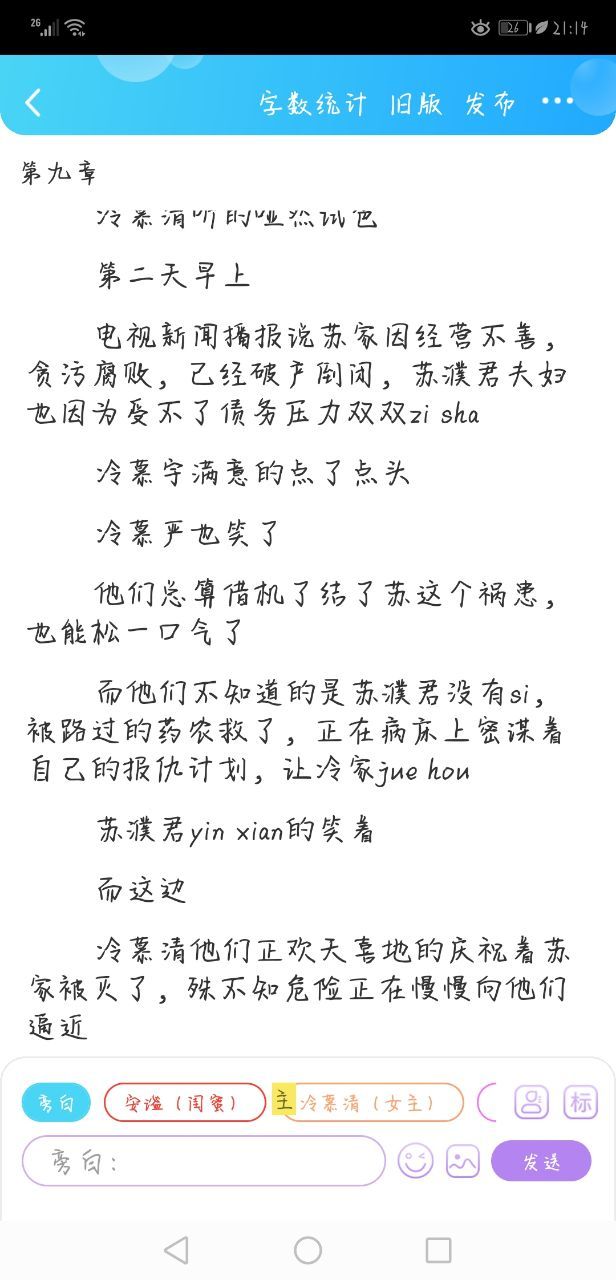 26
26
21:14
字数统计 旧版 发布
第九章
冷慕清听的哑然试色
第二天早上
电视新闻播报说苏家因经营不善，
贪污腐败，己经破产倒闭，苏濮君夫妇
也因为受不了债务压力双双zi sha
冷慕宇满意的点了点头
冷慕严也笑了
他们总算借机了结了苏这个祸患，
也能松一口气了
而他们不知道的是苏濮君没有si，
被路过的药农救了，正在病床上密谋着
自己的报仇计划，让冷家jue hou
苏濮君yin xian的笑着
而这边
冷慕清他们正欢天喜地的庆祝着苏
家被灭了，殊不知危险正在慢慢向他们
逼近
旁白 安谧（闺蜜） 主 冷慕清（女主） 标
旁白： 发送